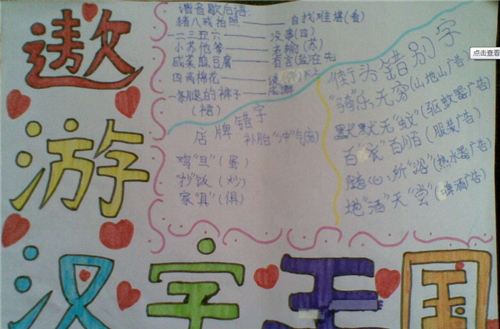 遨
游
汉字王国
谐音歇后语
猪八戒拍照——自找难堪(看)
二三五六——没事(四)
小苏他爹——老
咸菜 豆腐——有言(盐)在先
四两棉花
条腿的裤子
(裙)
店牌错字
补胎"冲"气
鸡"旦"(蛋)
"抄"饭(炒)
家"具"(俱)
街头错别字
"骑"乐无穷(山地山广告)
默默无"蚊"(驱蚊器广告)
百"衣"百顺(服装广告)
随心所"浴"(热水器广告)
地"洒"天"尝"(啤酒广告)
点击查看